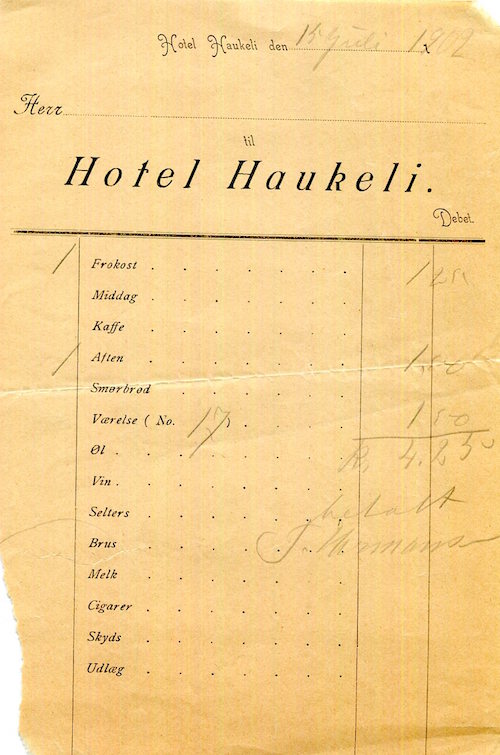 Hotel Haukeli den 15 Juli 1902
Herr
til
Hotel Haukeli.
Debet.
1 Frokost 1,25
Middag
Kaffe
1 Aften 1,50
Smørbrød
Værelse ( No. 17) 1,50
Øl 4.250
Vin
betalt
Selters
Brus
Melk
Cigarer
Skyds
Udlæg